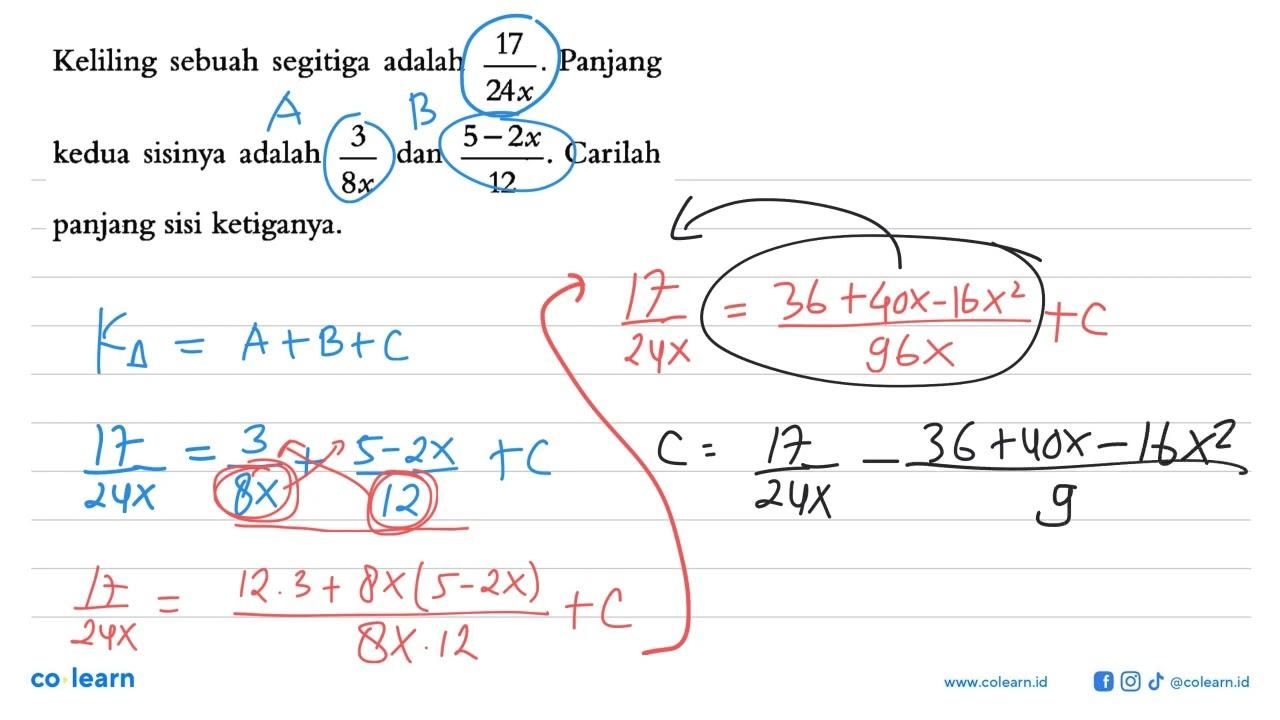 Keliling sebuah segitiga adalah 17/24x. Panjang
A B
kedua sisinya adalah 3/8x dan 5-2x/12. Carilah
panjang sisi ketiganya.
K△ = A+B+C
17/24x = 3/8x + 5-2x/12 +C
17/24x = 12.3+8x(5-2x)/8x.12 +C
17/24x = 36+40x-16x²/96x +C
C = 17/24x - 36+40x-16x²/9
co learn
www.colearn.id @colearn.id